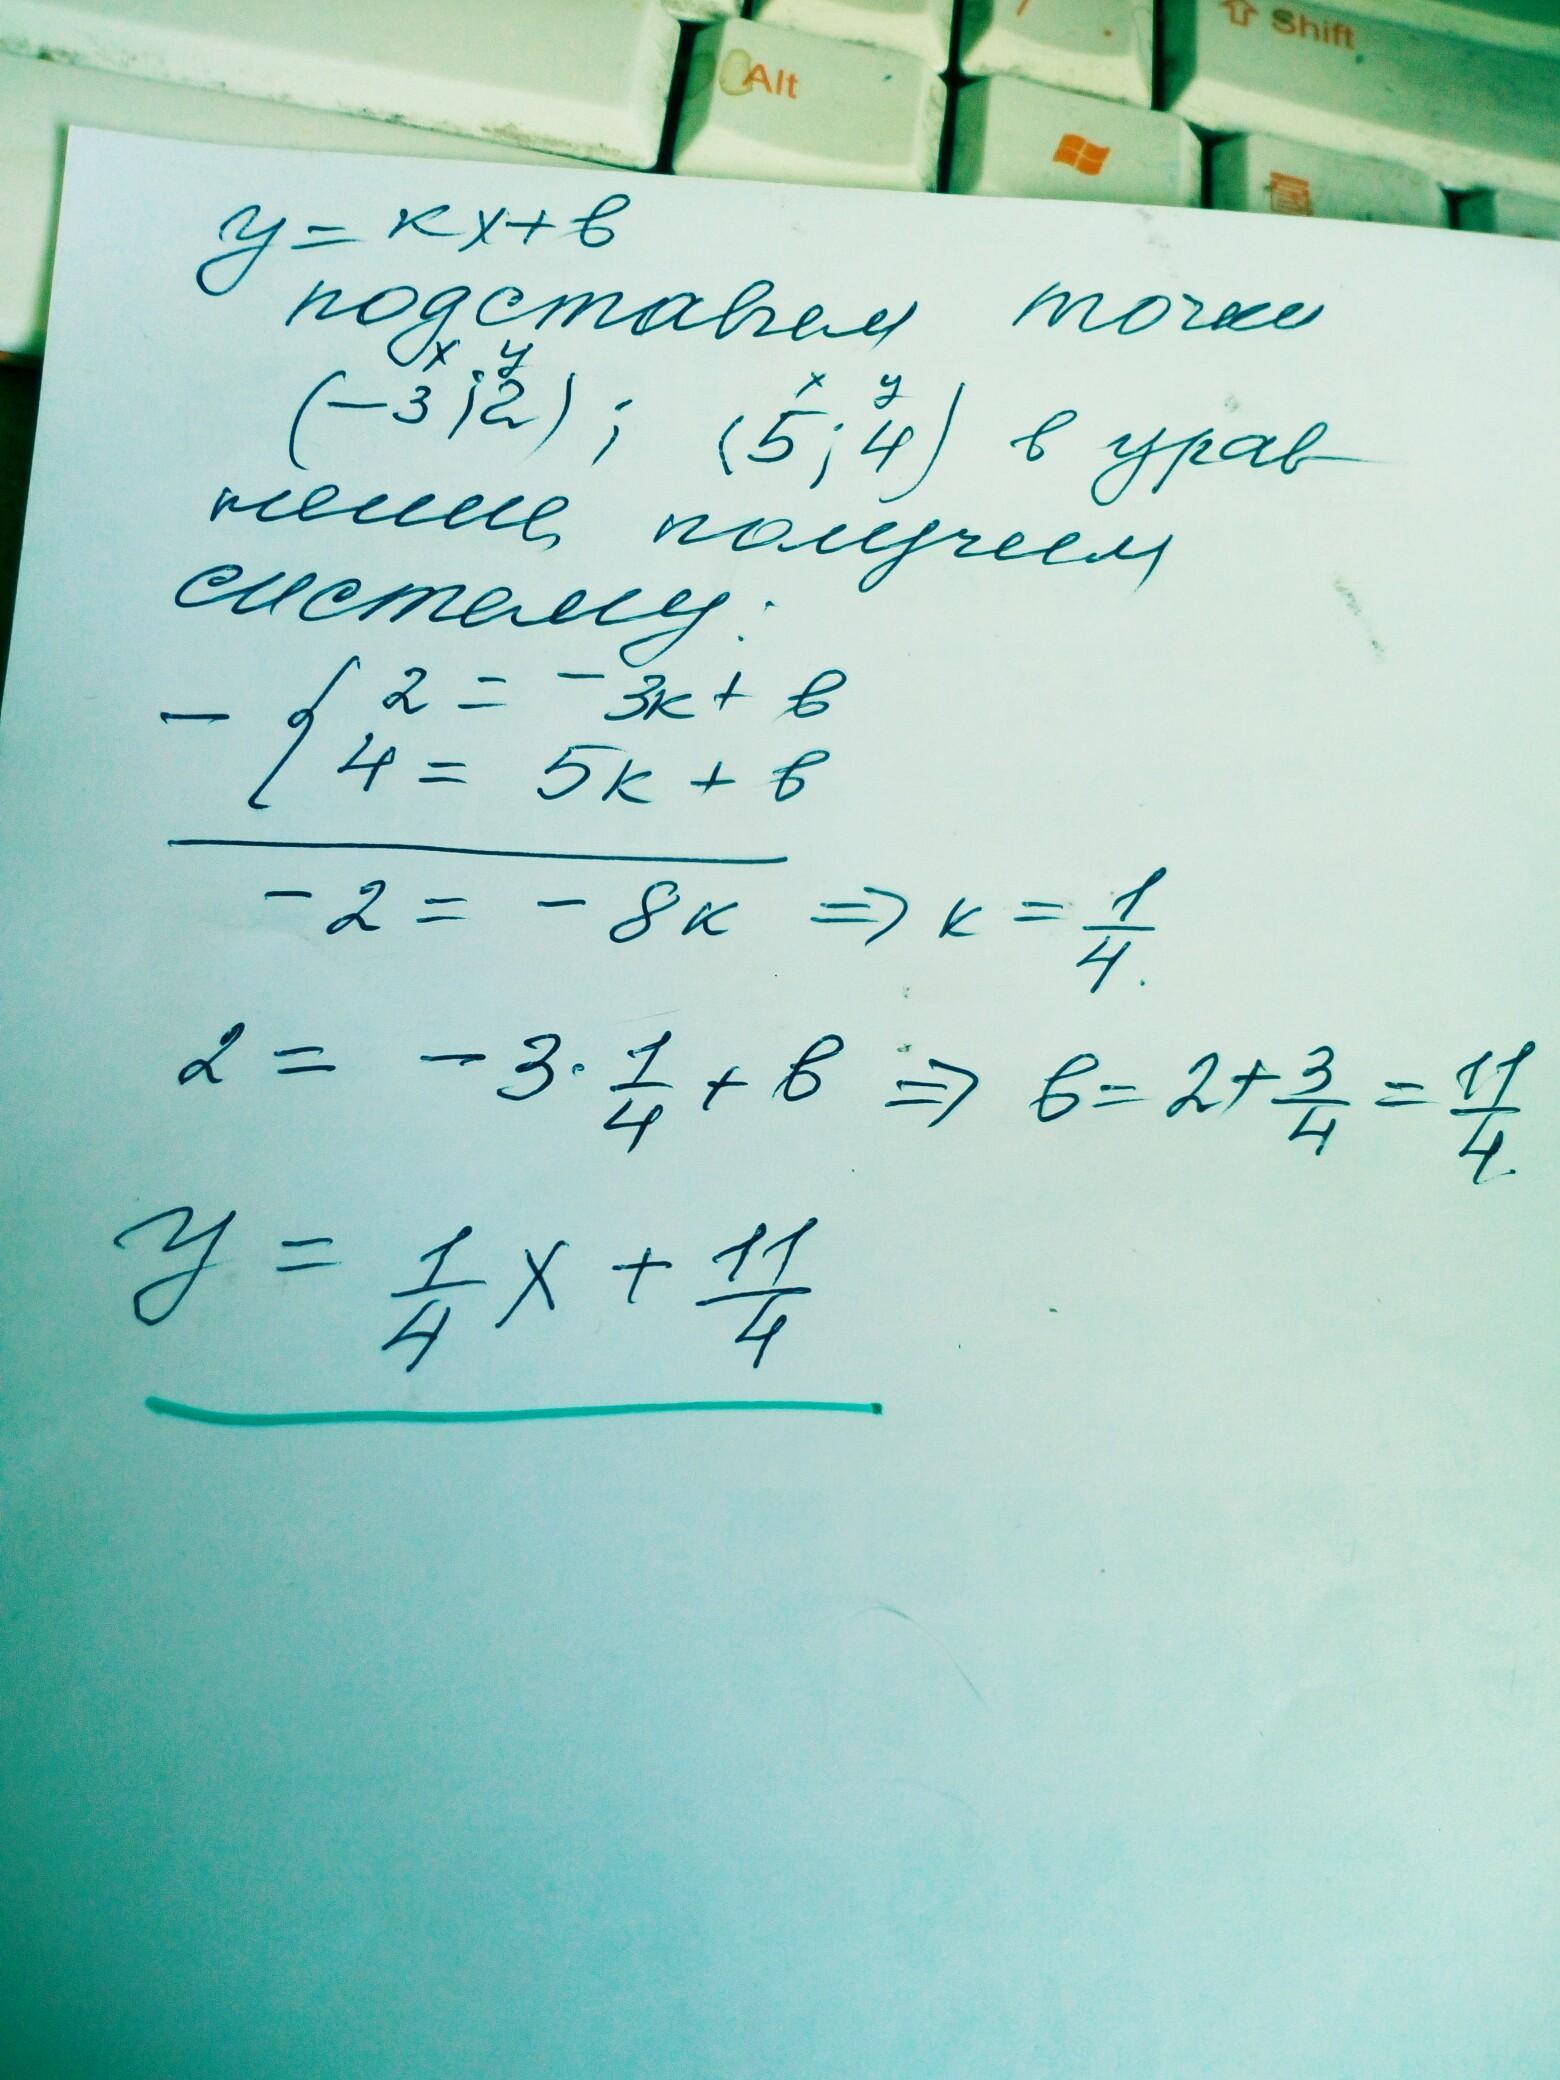 Alt
⇧ Shift
y = kx + b
подставим точки
x y x y
(-3; 2); (5; 4) в урав
нение, получим
систему:
- { 2 = -3k + b
4 = 5k + b
-2 = -8k => k = 1/4.
2 = -3 · 1/4 + b => b = 2 + 3/4 = 11/4.
y = 1/4 x + 11/4